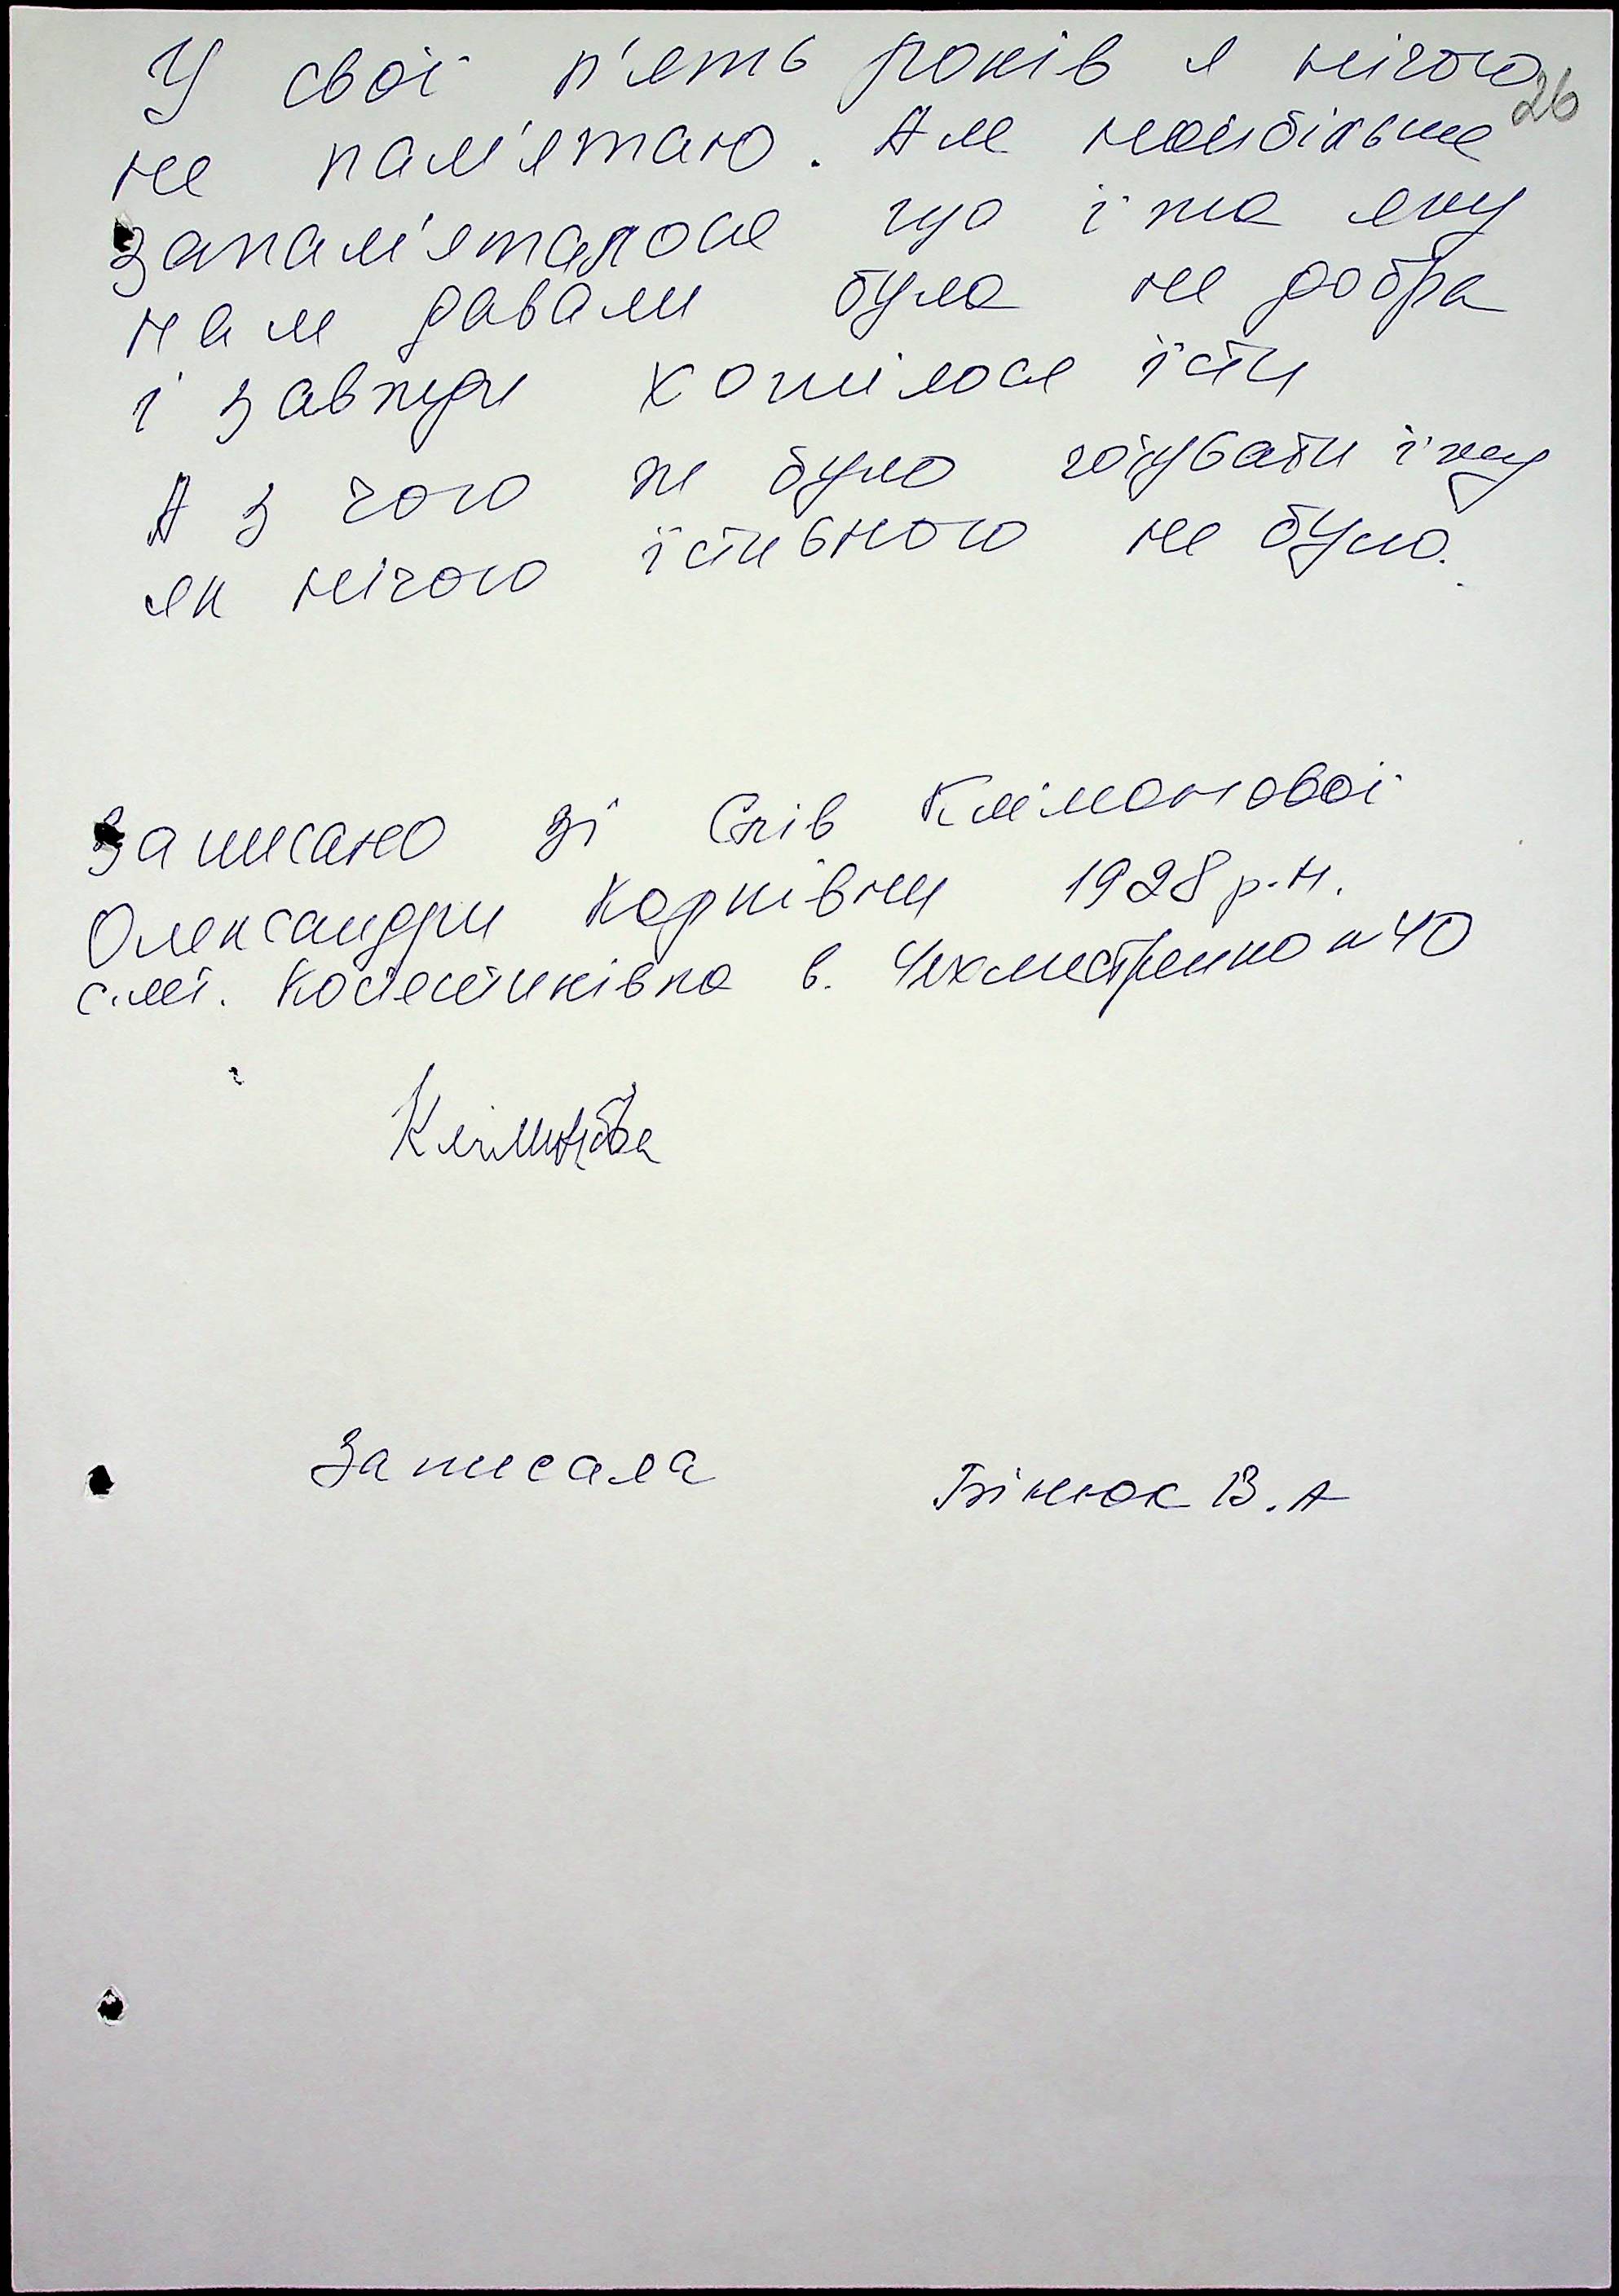 У свої п'ять років я нічого
26
не пам'ятаю. Але найбільше
запам'яталося що їжа яку
нам давали була не добра
і завжди хотілося їсти
А з чого ж було готувати їжу
як нічого їстивного не було.
Записано зі слів Клімонової
Олександри Карпівни 1928 р.н.
смт. Костянтинівка в. Чехмистренко н 40
Клімонова
Записала Бінюк В.А